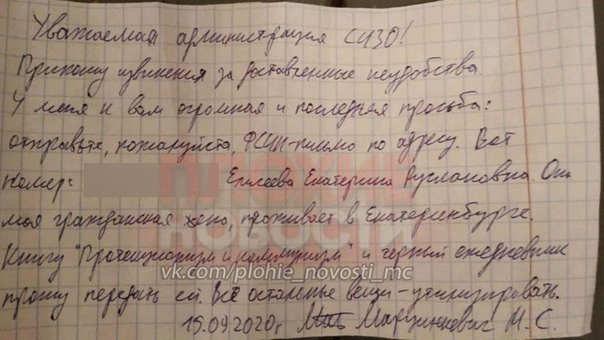 Уважаемая администрация СИЗО!
Приношу извинения за доставленные неудобства.
У меня к вам огромная и последняя просьба:
отправьте, пожалуйста, ФСИН-письмо по адресу. Вот
номер: Елисеева Екатерина Руслановна Она
моя гражданская жена, проживает в Екатеринбурге.
Книгу "Протекционизм и коммунизм" и черный ежедневник
vk.com/plohie_novosti_mc
прошу передать ей. Все остальные вещи - утилизировать.
15.09.2020г Марцинкевич М. С.
ПЛОХИЕ
НОВОСТИ